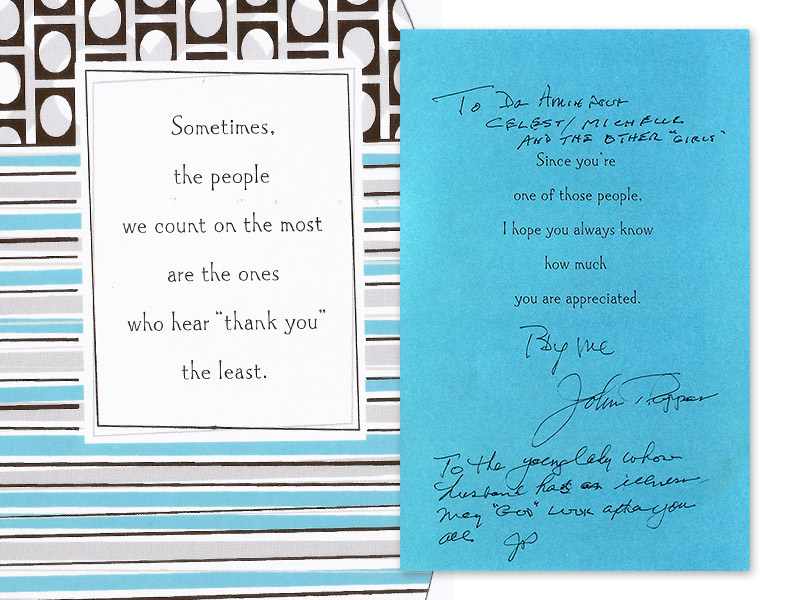 Sometimes,
the people
we count on the most
are the ones
who hear “thank you”
the least.
To Dr
CELEST/MICHELLE
AND THE OTHER "GIRLS"
Since you're
one of those people,
I hope you always know
how much
you are appreciated.
By me
John
To the young lady whose
husband has an illness
may "God" look after you
all. JP